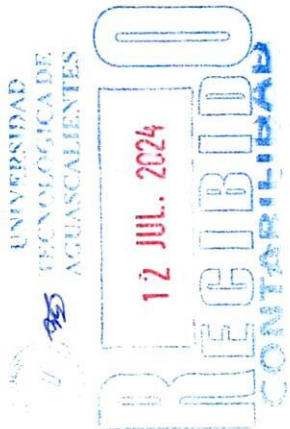 UNIVERSIDAD
TECNOLOGICA DE
AGUASCALIENTES
12 JUL. 2024
RECIBIDO
CONTABILIDAD